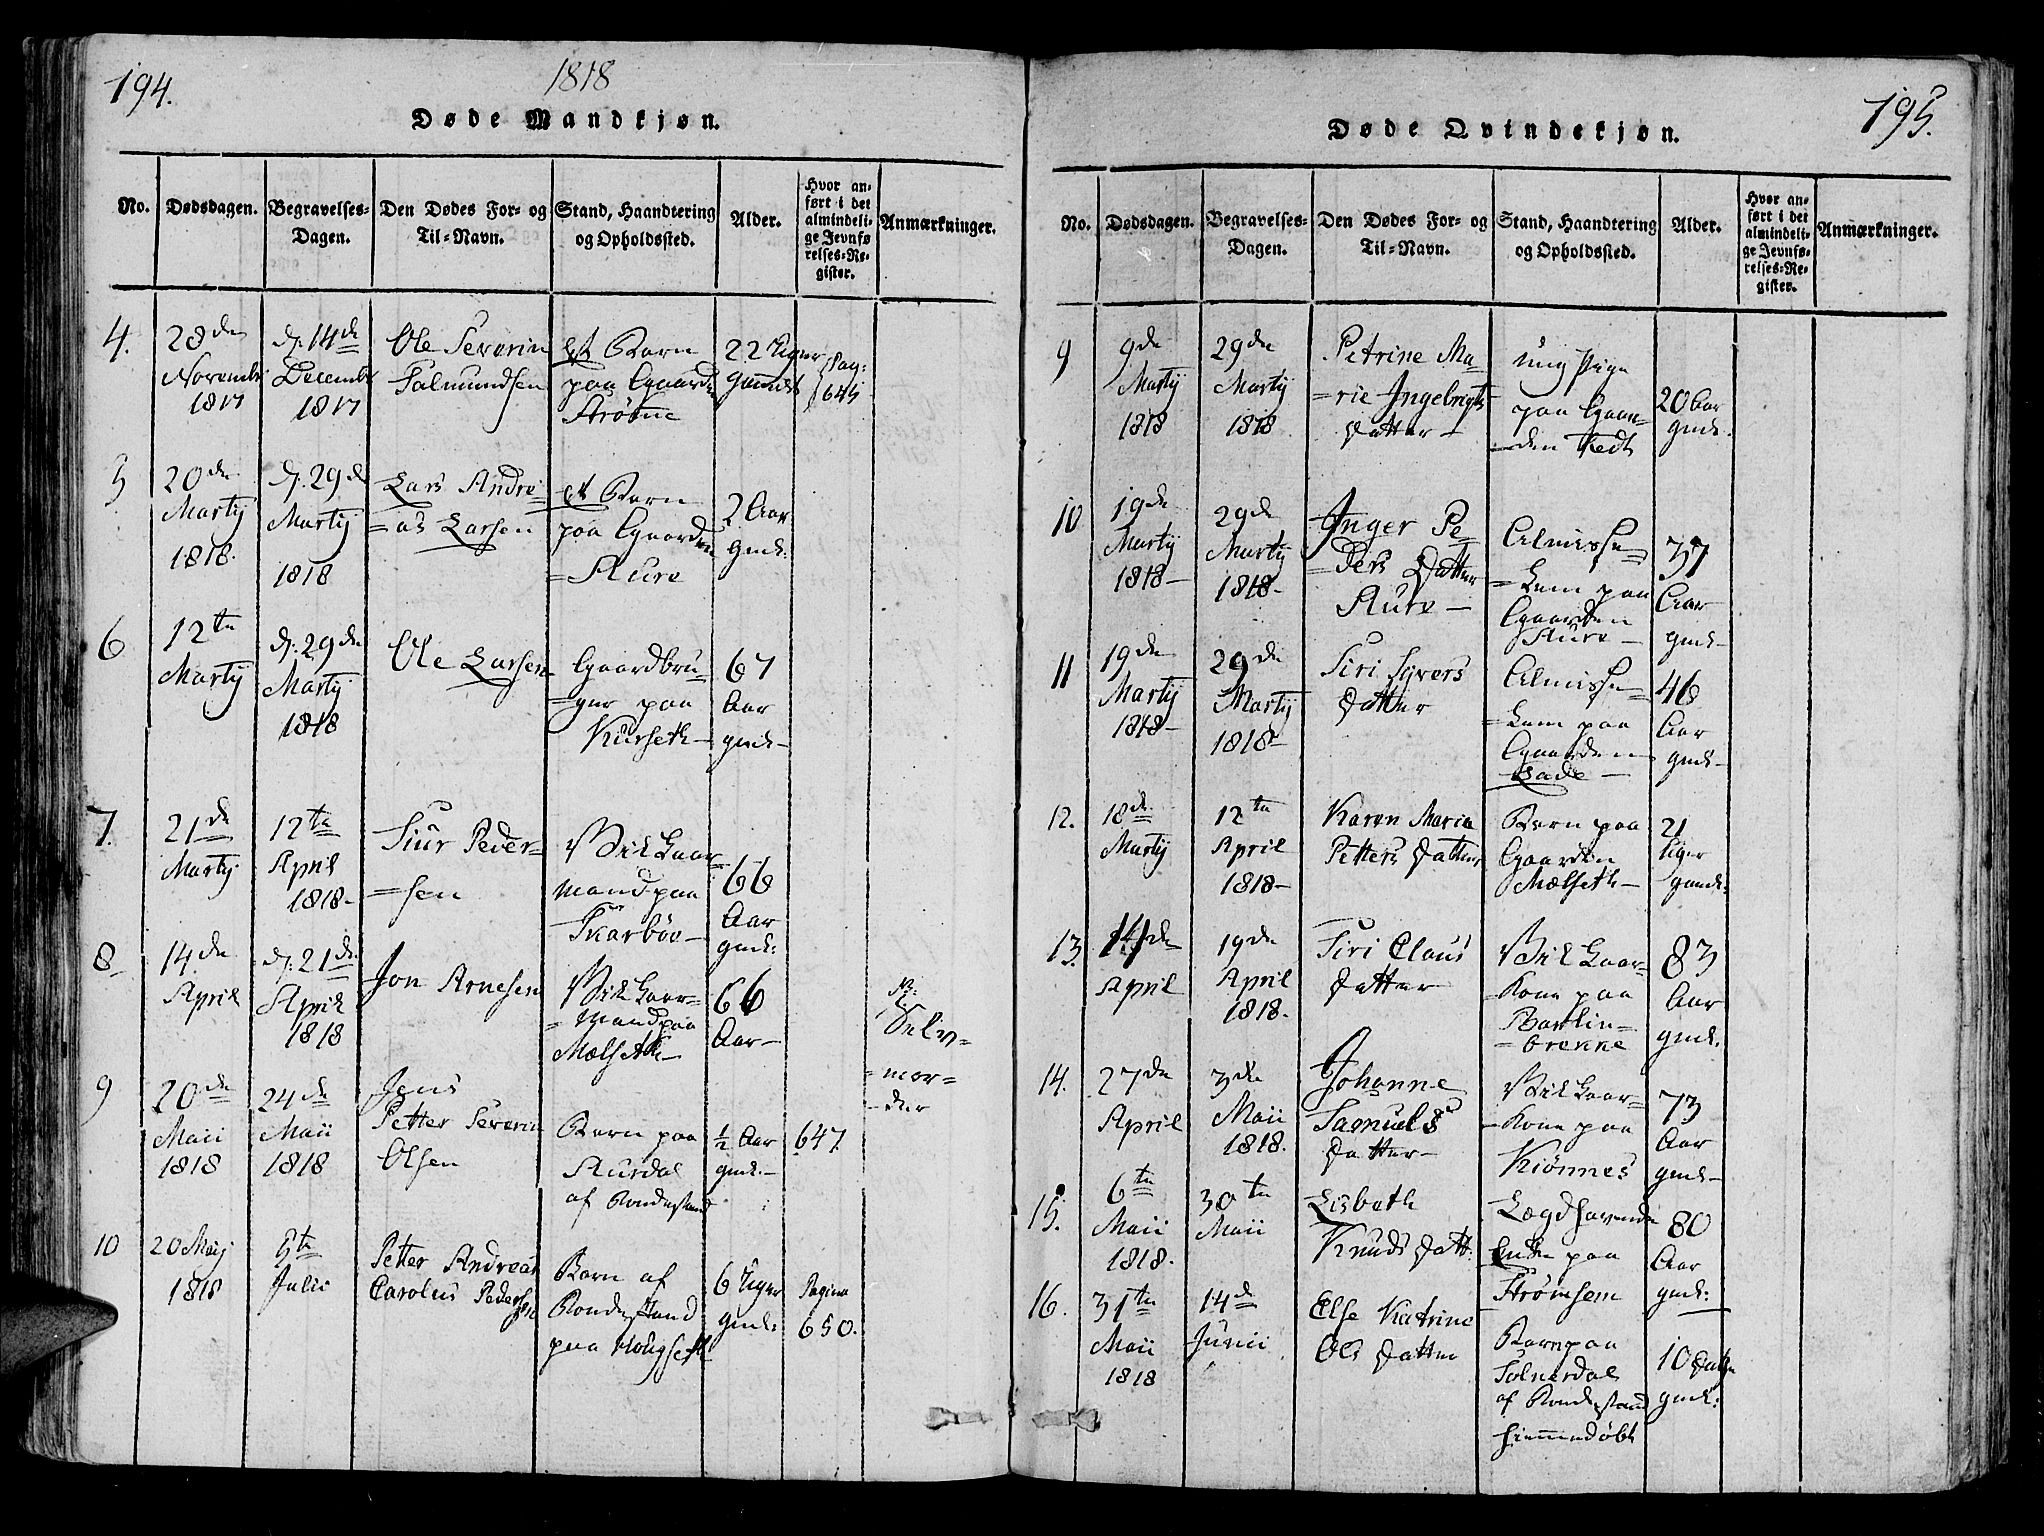 194.
1818
Døde Mandkjøn.
No.
Dødsdagen.
Begravelses-
Dagen.
Den Dødes For- og
Til-Navn.
Stand, Haandtering
og Opholdssted.
Alder.
Hvor an-
ført i det
almindeli-
ge Jevnfø
relses-Re-
gister.
Anmærkninger.
4.
28de
Novemb:
1817
d: 14de
Decembr
1817
Ole Severin
Salmundsen
et Barn
paa Gaarden
Strømme
22 Uger
gammel
Pag:
645
5
20de
Martij
1818.
d: 29de
Martij
1818
Lars Andre=
=as Larsen
et Barn
paa Gaarden
=Aure
2 Aar
gml:
6
12te
Martij
d: 29de
Martij
1818
Ole Larsen
Gaardbru=
=ger paa
Kurseth-
67
Aar
gml-
7.
21de
Martij
12te
April
1818-
Siur Peder=
=sen
Vilkaar=
mand paa
Skarbøe-
66
Aar
gml:
8
14de
April
d: 21de
April
1818
Jon Arnesen
Vilkaar=
=mand paa
Mælseth-
66
Aar-
Selv=
=mor=
=der
9
20de
Maii
1818
24de
Maii
1818
Jens
Petter Severin
Olsen
Barn paa
Aurdal
af Bondestand
½ Aar
gml.-
647.
10
20 Maij
1818
5te
Julii
Petter Andreas
Carolus Peder=
sen
Barn af
Bondestand
paa
6 Uger
gml:
Pagina
650.
195.
Døde Qvindekjøn.
No.
Dødsdagen.
Begravelses-
Dagen.
Den Dødes For- og
Til-Navn.
Stand, Haandtering
og Opholdssted.
Alder.
Hvor an-
ført i det
almindeli-
ge Jevnfø-
relses-Re-
gister.
Anmærkninger.
9
9de
Martij
1818
29de
Martij
1818
Petrine Ma=
=rie Ingebrigts
Datter-
ung Pige
paa Gaar=
=den
20 Aar
gml:
10
19de
Martij
1818-
29de
Martij
1818-
Inger Pe=
=ders Datter
Aure-
Almisse=
=Lem paa
Gaarden
Aure-
37
Aar
gml-
11
19de
Martij
1818-
29de
Martij
1818-
Siri Syvers
Datter
Almisse=
=Lem paa
Gaarden
46
Aar
gml-
12.
18de
Martij
12te
April
1818-
Karen Maria
Petters Datter
Barn paa
Gaarden
Mælseth-
21
Uger
gaml:
13.
14de
April
19de
April
1818.
Siri Claus
Datter
Vilkaar=
=Kone paa
Barlin=
=brekke
83
Aar
gml:
14.
27de
April
3die
Maii
1818.
Johanne
Samuels
Datter-
Vilkaar=
=Kone paa
Kiønnes
73
Aar
gml-
15.
6te
Maii
1818.
30te
Maii
Lisbeth
Knuds Datt:
Lægdhavende
Enke paa
Strømsem
80
Aar
gml:
16.
31te
Maii
1818
14de
Junii
Else Katrine
Ols Datter
Barn paa
Solnerdal
af Bondestand
Hiemmedøbt
10 Dage
gml: